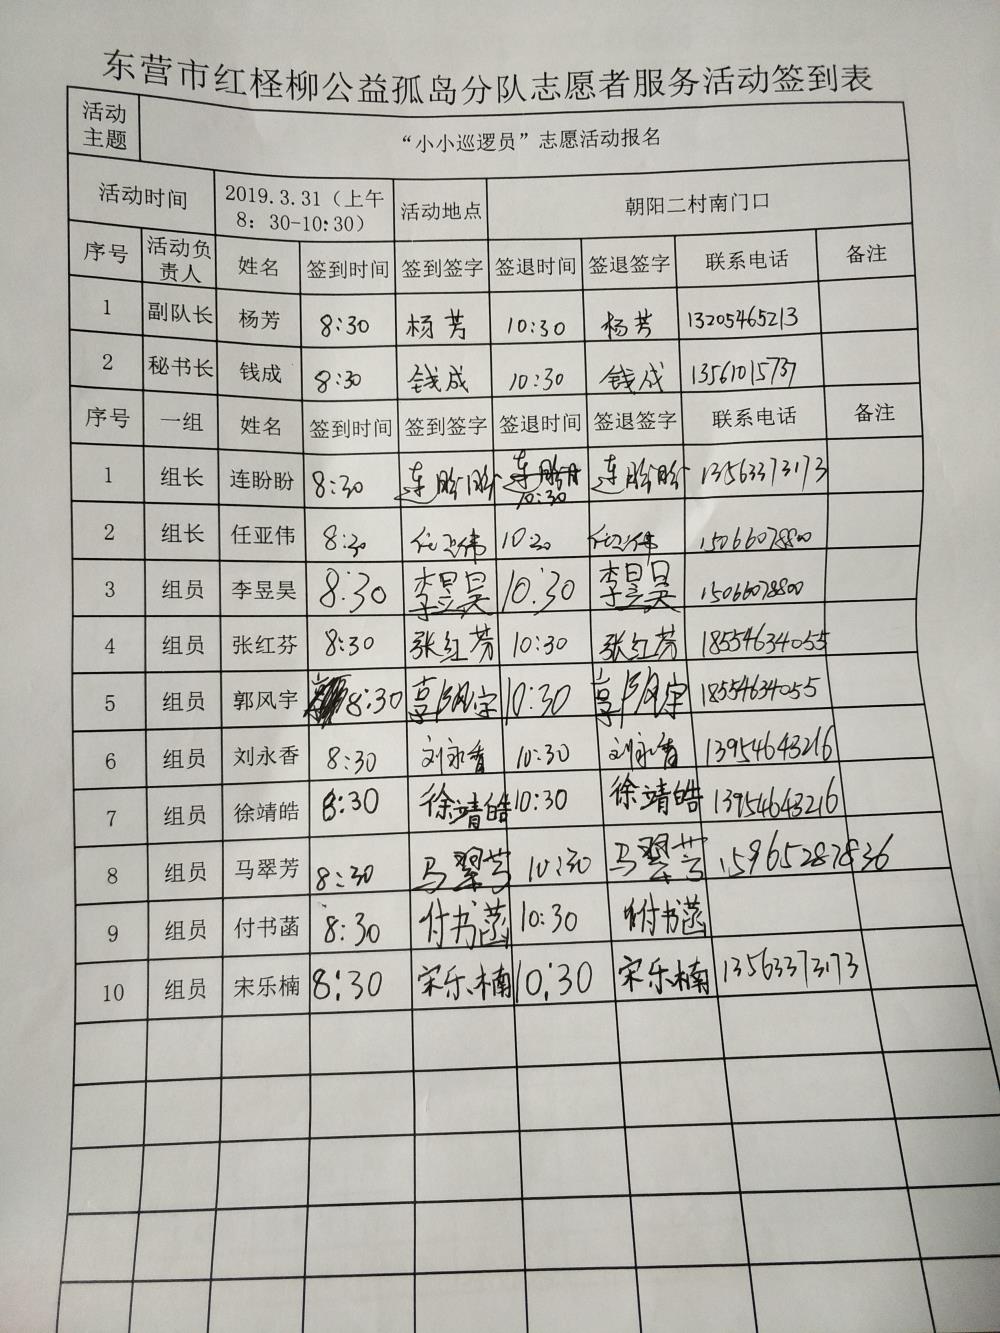 东营市红柽柳公益孤岛分队志愿者服务活动签到表
活动主题 “小小巡逻员”志愿活动报名
活动时间 2019.3.31（上午8：30-10:30） 活动地点 朝阳二村南门口
序号 活动负责人 姓名 签到时间 签到签字 签退时间 签退签字 联系电话 备注
1 副队长 杨芳 8:30 杨芳 10:30 杨芳 13205465213
2 秘书长 钱成 8:30 钱成 10:30 钱成 13561015737
序号 一组 姓名 签到时间 签到签字 签退时间 签退签字 联系电话 备注
1 组长 连盼盼 8:30 连盼盼 10:30 连盼盼 13563373173
2 组长 任亚伟 8:30 任亚伟 10:30 任亚伟 15066078800
3 组员 李昱昊 8:30 李昱昊 10:30 李昱昊 15066078800
4 组员 张红芬 8:30 张红芬 10:30 张红芬 18554634055
5 组员 郭风宇 8:30 郭风宇 10:30 郭风宇 18554634055
6 组员 刘永香 8:30 刘永香 10:30 刘永香 13954643216
7 组员 徐靖皓 8:30 徐靖皓 10:30 徐靖皓 13954643216
8 组员 马翠芳 8:30 马翠芳 10:30 马翠芳 15965287836
9 组员 付书菡 8:30 付书菡 10:30 付书菡
10 组员 宋乐楠 8:30 宋乐楠 10:30 宋乐楠 13563373173